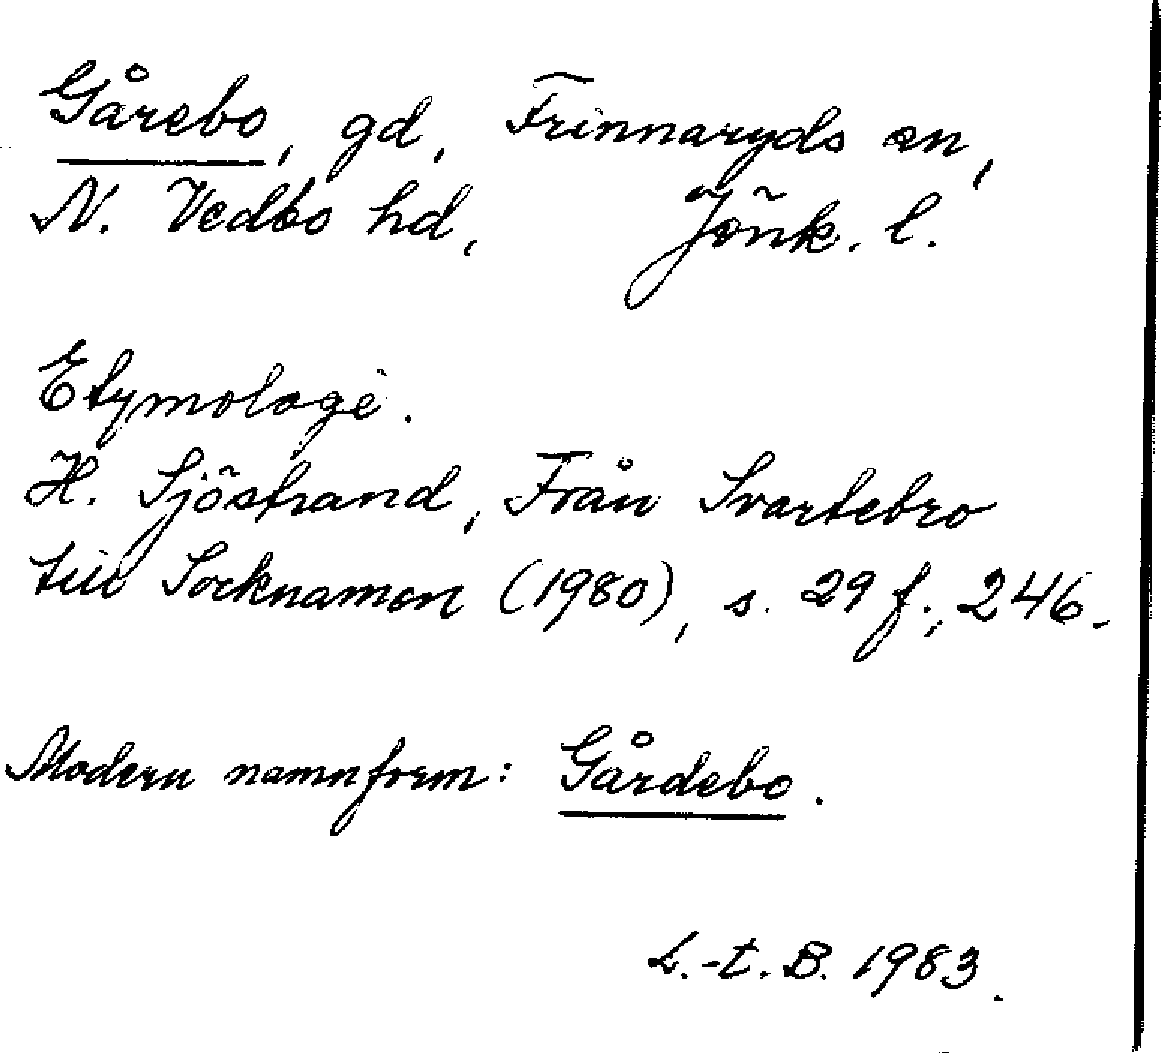 Gårebo, gd, Frinnaryds sn,
N. Vedbo hd, Jönk. l.
Etymologi.
H. Sjöstrand, Från Svartebro
till Socknamon (1980), s. 29 f., 246.
Modern namnform: Gårdebo.
L.-t. B. 1983.